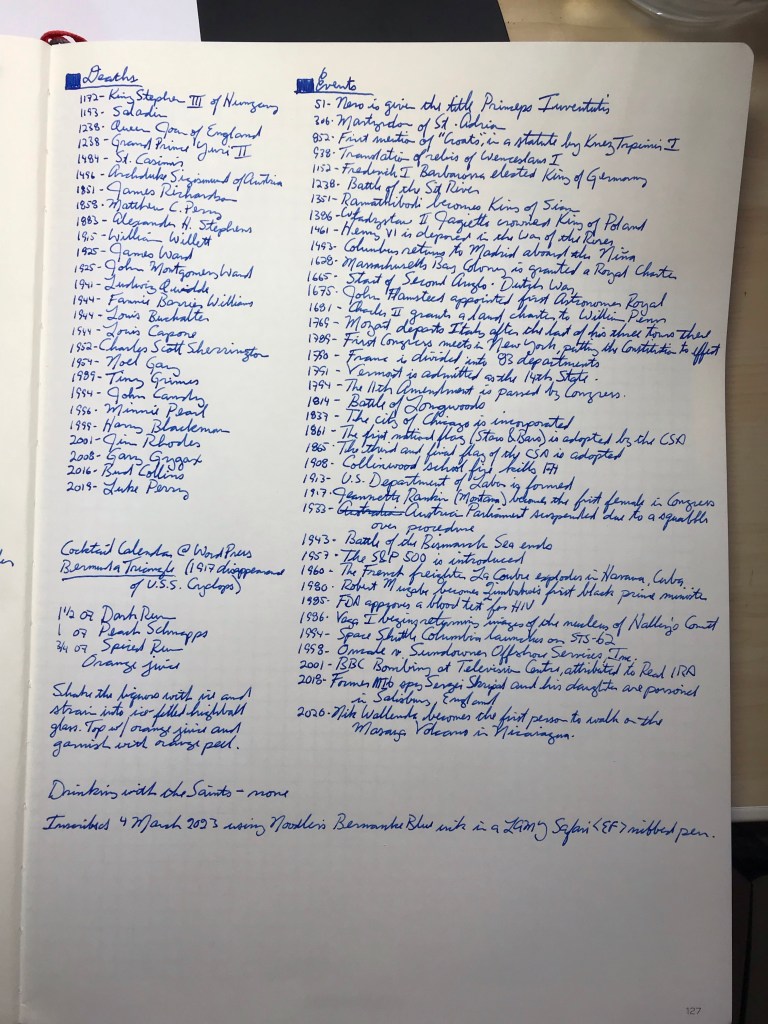 Deaths
1172- King Stephen III of Hungary
1193- Saladin
1238- Queen Joan of England
1238- Grand Prince Yuri II
1484- St. Casimir
1496- Archduke Sigismund of Austria
1851- James Richardson
1858- Matthew C. Perry
1883- Alexander H. Stephens
1915- William Willett
1925- James Ward
1925- John Montgomery Ward
1941- Ludwig Quidde
1944- Fannie Barrier Williams
1944- Louis Buchalter
1944- Louis Capone
1952- Charles Scott Sherrington
1954- Noel Gay
1989- Tiny Grimes
1994- John Candy
1996- Minnie Pearl
1999- Harry Blackmun
2001- Jim Rhodes
2008- Gary Gygax
2016- Bud Collins
2019- Luke Perry
Cocktail Calendar @ WordPress
Bermuda Triangle (1917 disappearance
of U.S.S. Cyclops)
1 1/2 oz Dark Rum
1 oz Peach Schnapps
3/4 oz Spiced Rum
Orange juice
Shake the liquors with ice and
strain into ice-filled highball
glass. Top w/ orange juice and
garnish with orange peel.
Events
51- Nero is given the title Princeps Iuventutis
306- Martyrdom of St. Adrian
852- First mention of "Croats", in a statute by Knez Trpimir I
938- Translation of relics of Wenceslaus I
1152- Frederick I Barbarossa elected King of Germany
1238- Battle of the Sit River
1351- Ramathibodi becomes King of Siam
1386- Władysław II Jagiełło crowned King of Poland
1461- Henry VI is deposed in the War of the Roses
1493- Columbus returns to Madrid aboard the Niña
1628- Massachusetts Bay Colony is granted a Royal Charter
1665- Start of Second Anglo-Dutch War
1675- John Flamsteed appointed first Astronomer Royal
1681- Charles II grants a land charter to William Penn
1769- Mozart departs Italy after the last of his three tours there
1789- First Congress meets in New York, putting the Constitution to effect
1790- France is divided into 83 departments
1791- Vermont is admitted as the 14th State.
1794- The 11th Amendment is passed by Congress.
1814- Battle of Longwoods
1837- The city of Chicago is incorporated
1861- The first national flag (Stars & Bars) is adopted by the CSA
1865- The third and final flag of the CSA is adopted
1908- Collinwood school fire kills 174
1913- U.S. Department of Labor is formed
1917- Jeannette Rankin (Montana) becomes the first female in Congress
1933- Austria Parliament suspended due to a squabble
over procedure
1943- Battle of the Bismarck Sea ends
1957- The S&P 500 is introduced
1960- The French freighter La Coubre explodes in Havana, Cuba.
1980- Robert Mugabe becomes Zimbabwe's first black prime minister
1985- FDA approves a blood test for HIV
1986- Vega I begins returning images of the nucleus of Halley's Comet
1994- Space Shuttle Columbia launches on STS-62
1998- Oncale v. Sundowner Offshore Services, Inc.
2001- BBC Bombing at Television Centre, attributed to Real IRA
2018- Former MI6 spy Sergei Skripal and his daughter are poisoned
in Salisbury, England
2020- Nik Wallenda becomes the first person to walk on the
Masaya Volcano in Nicaragua.
Drinking with the Saints - none
Inscribed 4 March 2023 using Noodler's Bernanke Blue ink in a LAMY Safari <EF> nibbed pen.
127